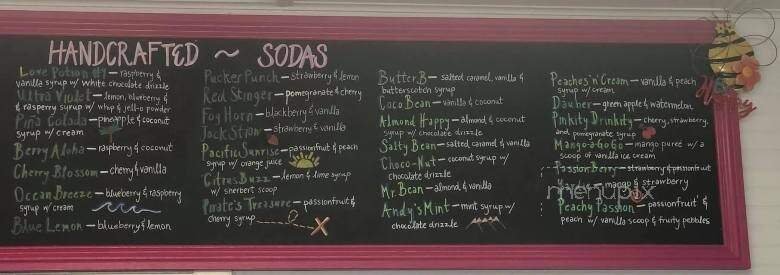 HANDCRAFTED ~ SODAS
Love Potion #9 — raspberry &
vanilla syrup w/ white chocolate drizzle
Ultra Violet — lemon, blueberry &
& raspberry syrup w/ whip & jell-o powder
Piña Colada — pineapple & coconut
syrup w/ cream
Berry Aloha — raspberry & coconut
Cherry Blossom — cherry & vanilla
Ocean Breeze — blueberry & raspberry
syrup w/ cream
Blue Lemon — blueberry & lemon
Pucker Punch — strawberry & lemon
Red Stinger — pomegranate & cherry
Fog Horn — blackberry & vanilla
Jack Straw — strawberry & vanilla
Pacific Sunrise — passionfruit & peach
syrup w/ orange juice
Citrus Buzz — lemon & lime syrup
w/ sherbert scoop
Pirate's Treasure — passionfruit &
cherry syrup
X
Butter B — salted caramel, vanilla &
butterscotch syrup
Coco Bean — vanilla & coconut
Almond Happy — almond & coconut
syrup w/ chocolate drizzle
Salty Bean — salted caramel & vanilla
Choco-Nut — coconut syrup w/
chocolate drizzle
Mr. Bean — almond & vanilla
Andy's Mint — mint syrup w/
chocolate drizzle
Peaches 'n' Cream — vanilla & peach
syrup w/ cream
Dauber — green apple & watermelon
Pinkity Drinkity — cherry, strawberry,
and pomegranate syrup
Mango-a-GoGo — mango pureé w/ a
scoop of vanilla ice cream
Passion Berry — strawberry & passionfruit
mango & strawberry
menupix
Peachy Passion — passionfruit &
peach w/ vanilla scoop & fruity pebbles